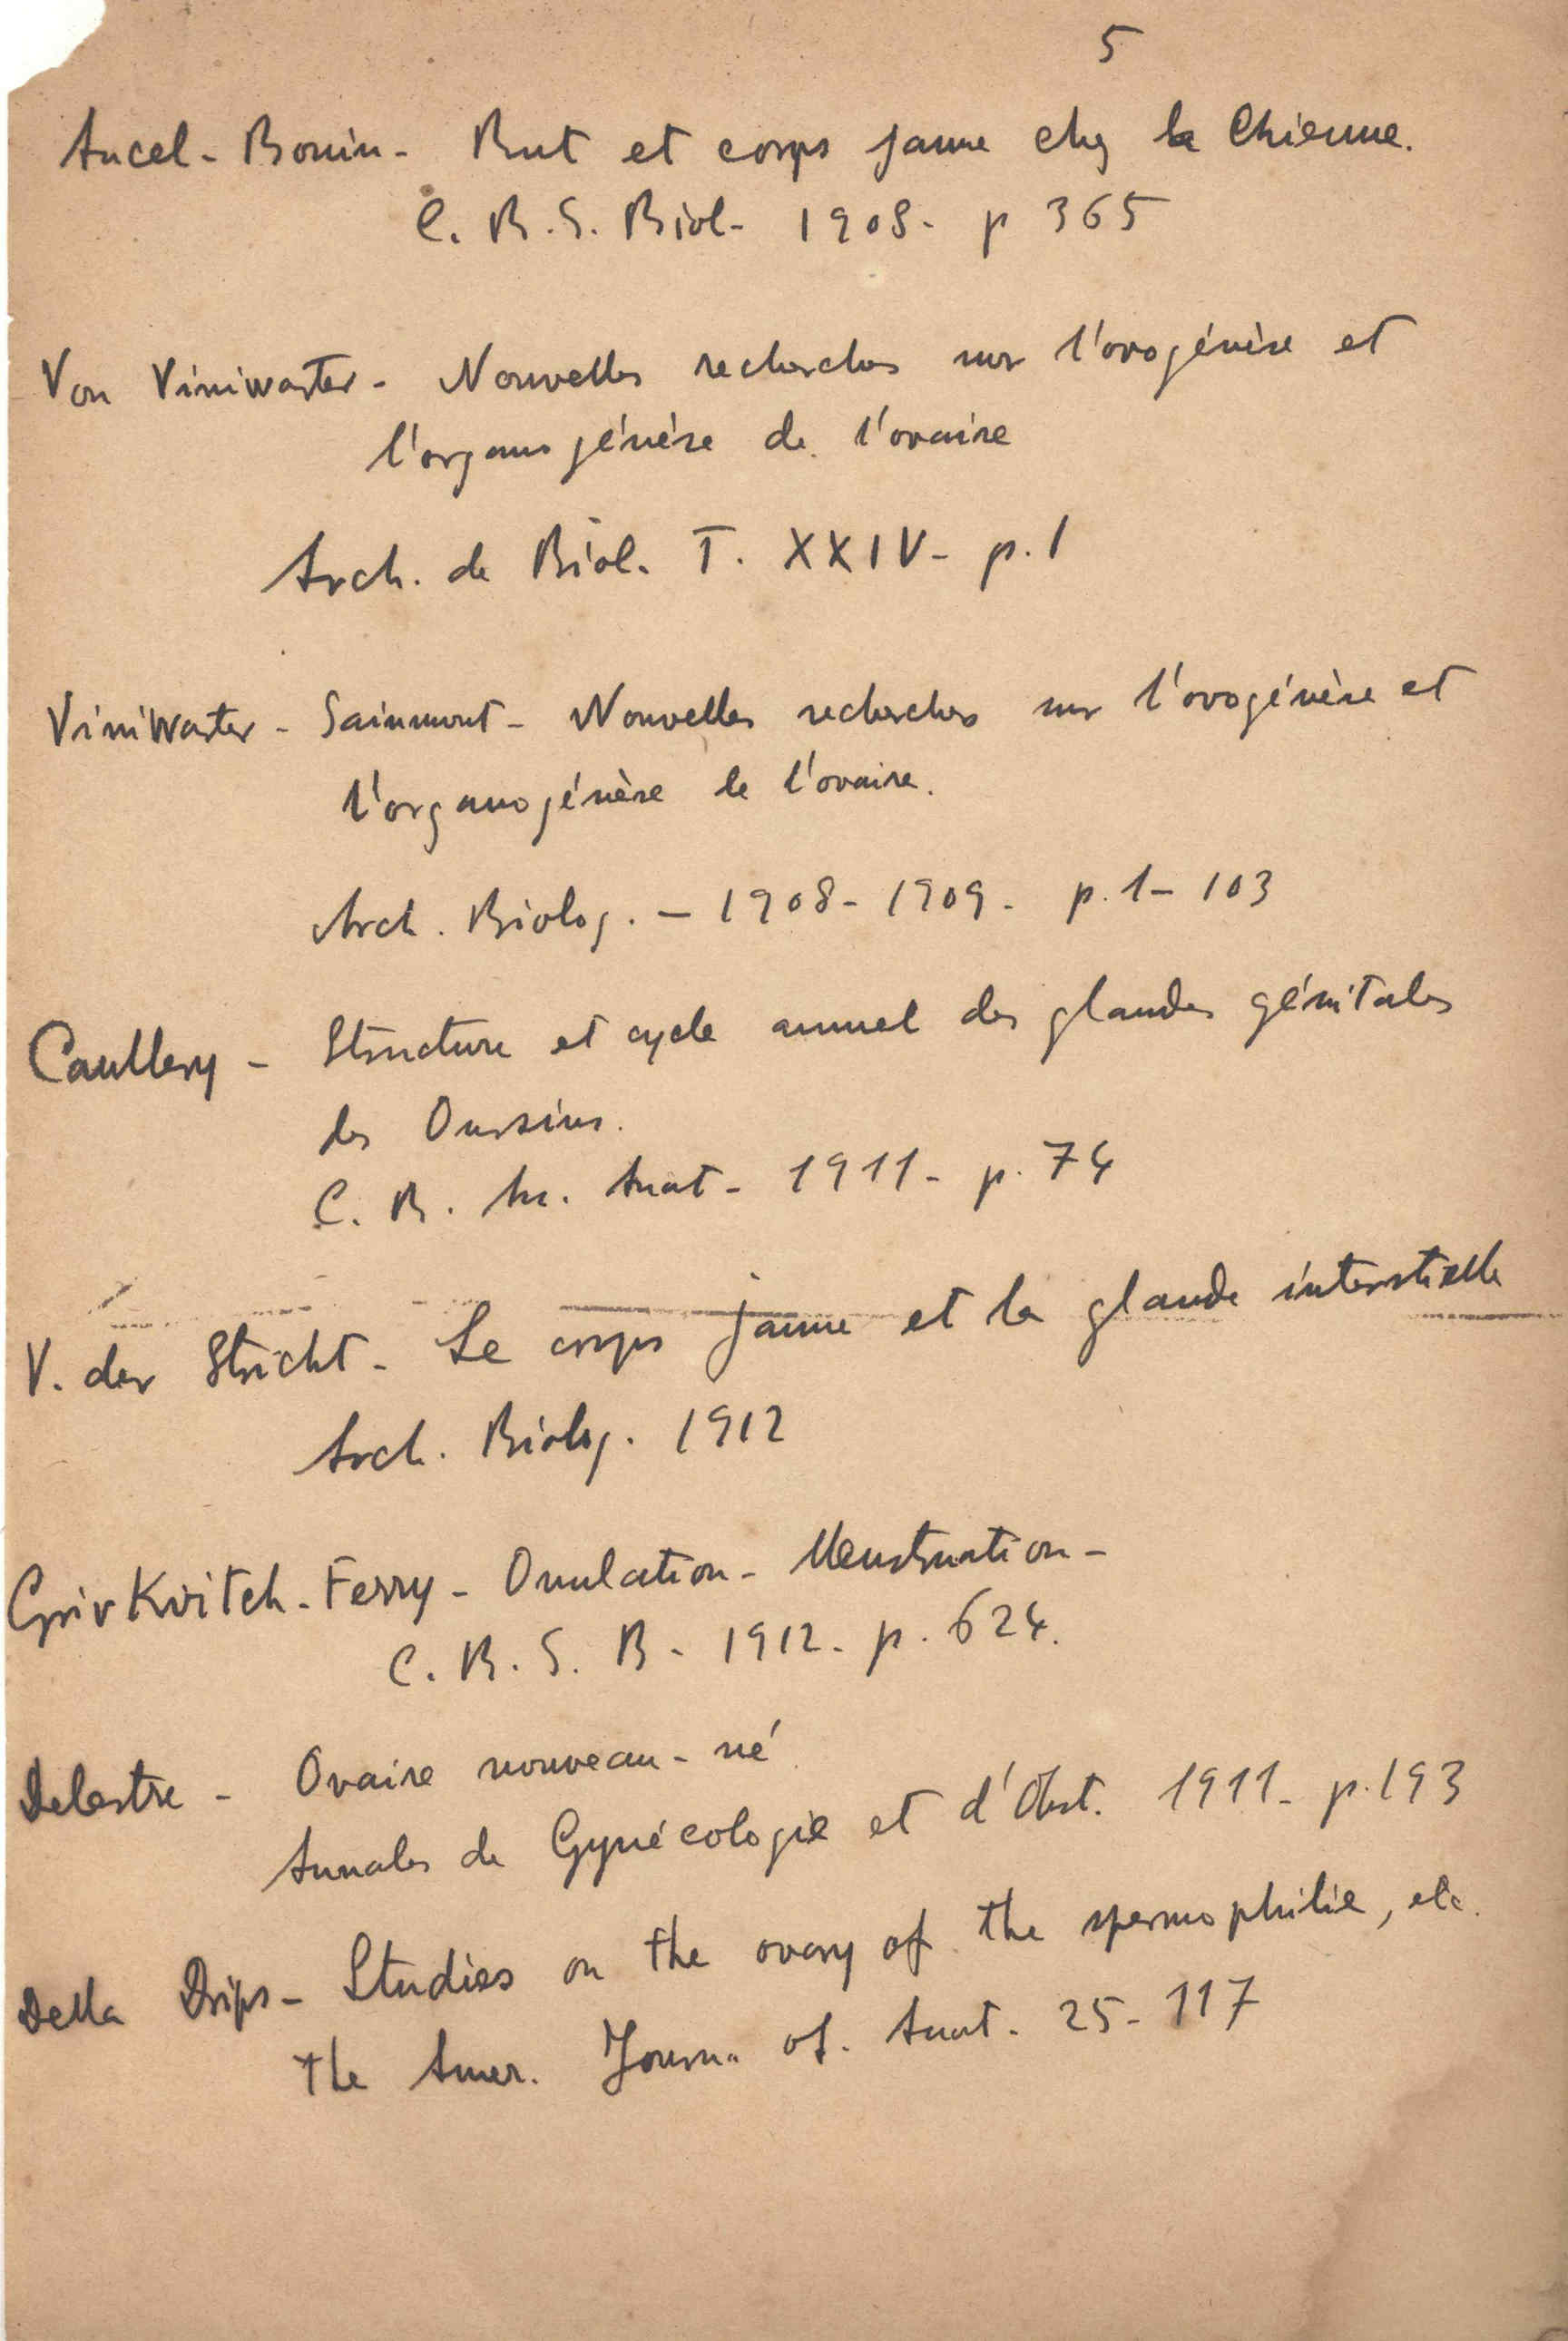 5
Ancel - Bouin - Rut et corps jaune chez la Chienne.
C. R. S. Biol - 1908 - p 365
Von Viniwarter - Nouvelles recherches sur l'ovogénèse et
l'organogénèse de l'ovaire
Arch. de Biol. T. XXIV - p. 1
Viniwarter - Sainmont - Nouvelles recherches sur l'ovogénèse et
l'organogénèse de l'ovaire.
Arch. Biolog. - 1908 - 1909 - p. 1 - 103
Caullery - Structure et cycle annuel des glandes génitales
des Oursins.
C. R. Anat - 1911 - p. 74
V. der Stricht - Le corps jaune et la glande interstitielle
Arch. Biolog. 1912
Ferry - Ovulation - Menstruation -
C. R. S. B - 1912 - p. 624.
Delestre - Ovaire nouveau-né
Annales de Gynécologie et d'Obst. 1911 - p. 193
Della Drips - Studies on the ovary of the spermophilie, etc.
The Amer. Journ. of. Anat. 25 - 117